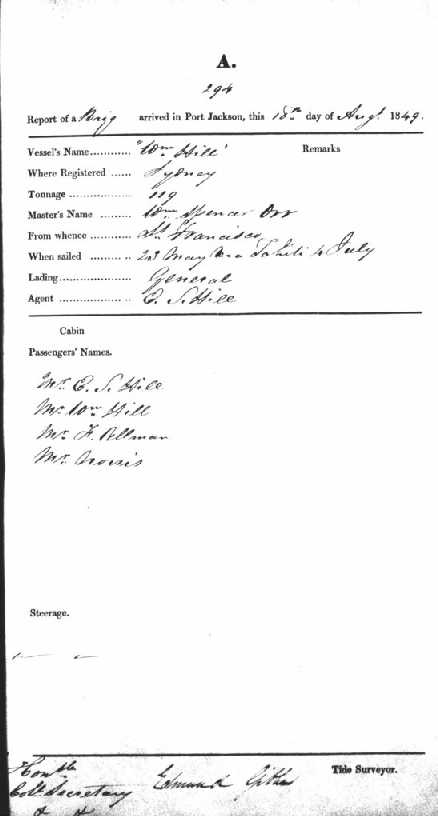 A.
294
Report of a Brig arrived in Port Jackson, this 18th day of Augt 1849.
Vessel's Name........... "Wm Hill" Remarks
Where Registered ...... Sydney
Tonnage .................. 119
Master's Name ......... Wm Spencer Orr
From whence ........... St Francisco
When sailed ........... 23 May Tahiti 4 July
Lading..................... General
Agent .................... E. S. Hill
Cabin
Passengers' Names.
Mr. E. S. Hill
Mr. Wm Hill
Mr. F. Pellman
Mr. Norris
Steerage.
Honble
Col. Secretary Edmund Tide Surveyor.